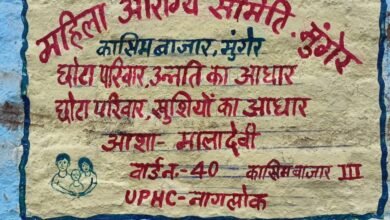 महिला आरोग्य समिति, मुंगेर
कासिम बाजार, मुंगेर
छोटा परिवार, उन्नति का आधार
छोटा परिवार, खुशियों का आधार
आशा- माला देवी
वार्डन.-40 कासिम बाजार III
UPHC-नागलोक